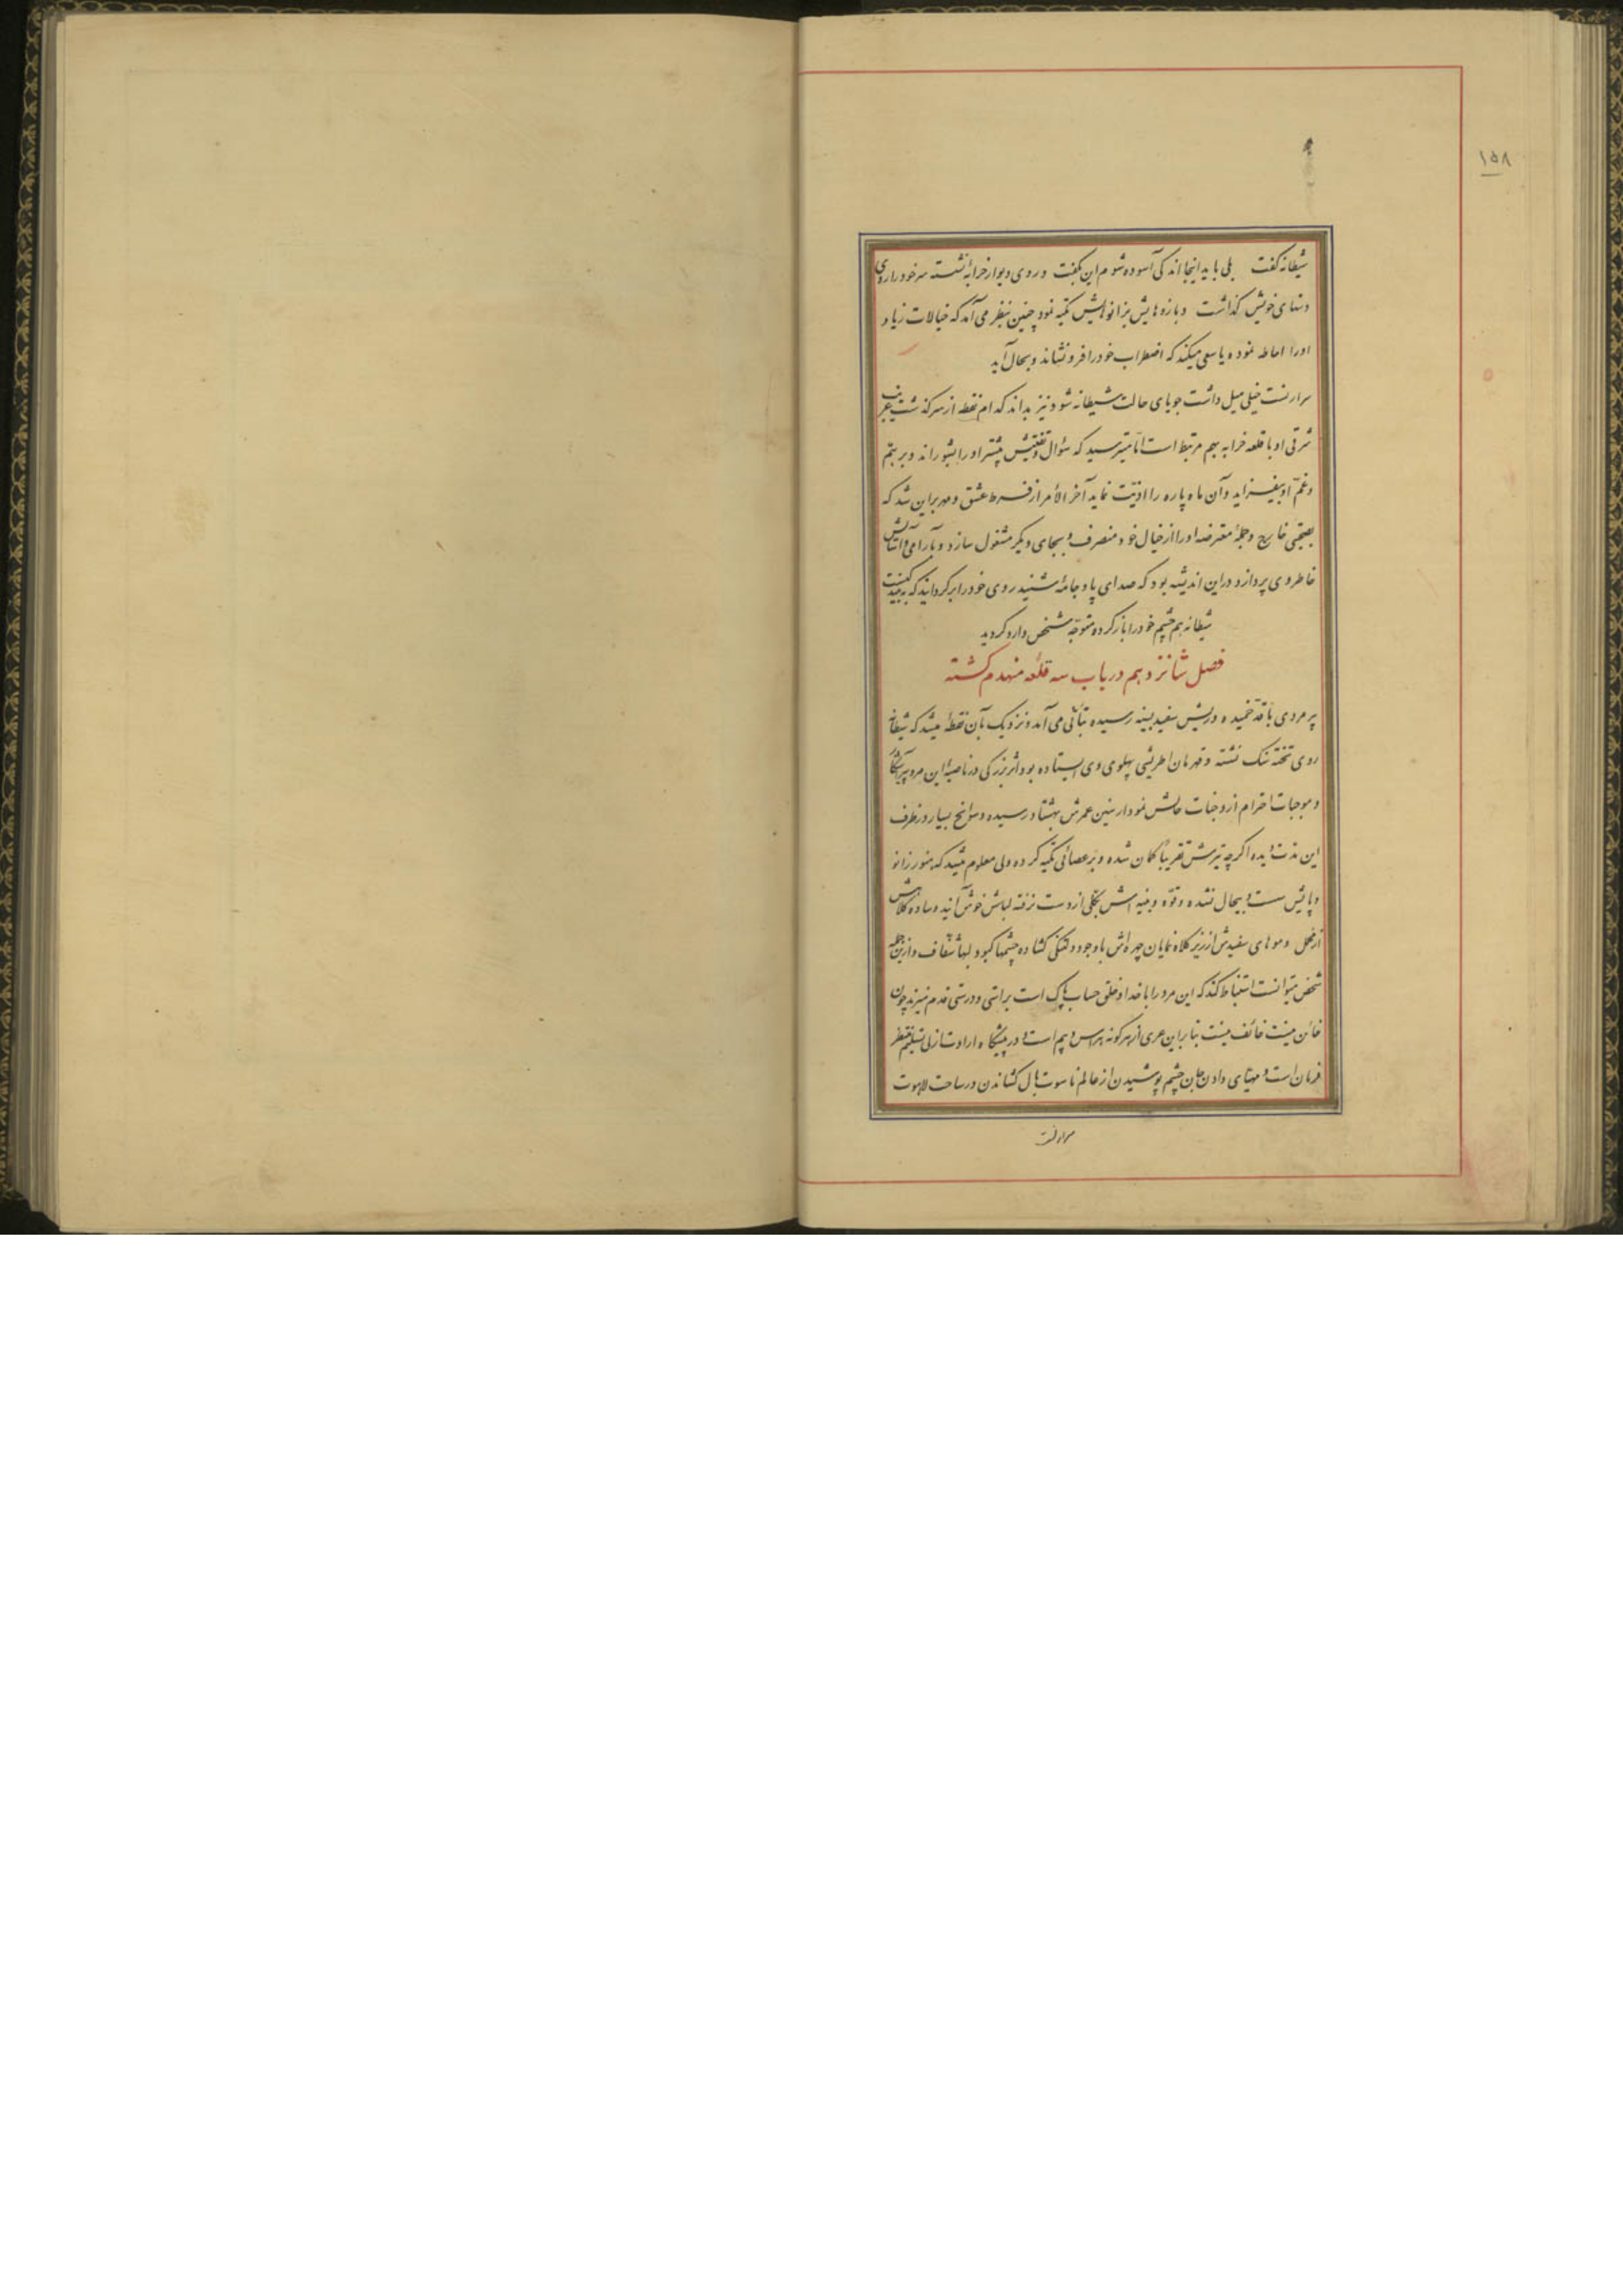 ۱۵۸
شیطانه گفت بلی باید اینجا اندکی آسوده شوم این بگفت و روی دیوار خرابه نشسته سر خود را روی
دستهای خویش گذاشت و بازوهایش بزانوهایش تکیه نمود چنین بنظر می آمد که خیالات زیاد
اورا احاطه نموده یا سعی میکند که اضطراب خود را فرو نشاند و بحال آید
سرارنست خیلی میل داشت جویای حالت شیطانه شود و نیز بداند کدام نقطه از سرگذشت عجیب
شرقی او با قلعه خرابه بهم مرتبط است اما میترسید که سؤال و تفتیش بیشتر اورا بشوراند و بر هم
و غم او بیفزاید و آن ماه پاره را اذیت نماید آخر الأمر از فرط عشق و مهر بر این شد که
بصحبتی خارج و جمله معترضه اورا از خیال خود منصرف و بجای دیگر مشغول سازد و بآرامی و آسایش
خاطر وی پردازد در این اندیشه بود که صدای پا و جامه شنید روی خود را برگردانید که ببیند کیست
شیطانه هم چشم خود را باز کرده متوجه شخص وارد گردید
فصل شانزدهم در باب سه قلعه منهدم گشته
پیرمردی با قد خمیده و ریش سفید بسینه رسیده بتأنی می آمد و نزدیک بآن نقطه میشد که شیطانه
روی تخته سنگ نشسته و قهرمان اطریشی پهلوی وی ایستاده بود اثر بزرگی در ناصیه این مرد پیر آشکار
و موجبات احترام از وجنات حالش نمودار سنین عمرش بهشتاد رسیده و سوانح بسیار در ظرف
این مدت دیده اگرچه تیرش تقریباً کمان شده و بر عصائی تکیه کرده ولی معلوم میشد که هنوز زانو
و پایش سست و بیحال نشده و قوه و بنیه اش بکلی از دست نرفته لباسش خوش آیند و ساده کلاهش
از مخمل و موهای سفیدش از زیر کلاه نمایان چهره اش با وجود دلتنگی گشاده چشمها کبود لبها شفاف و از این جمله
شخص میتوانست استنباط کند که این مرد را با خدا و خلق حساب پاک است براستی و درستی قدم میزند چون
خائن نیست خائف نیست بنا بر این عری از هرگونه هراس و بیم است و در پیشگاه ارادت ازلی تسلیم منتظر
فرمان است و مهیای دادن جان چشم پوشیدن از عالم ناسوت بال گشاندن در ساحت لاهوت
سرارنست